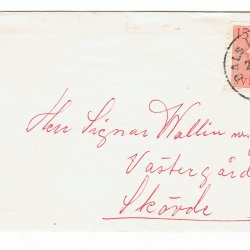 Herr Signar Wallin m.
Västergård
Skövde